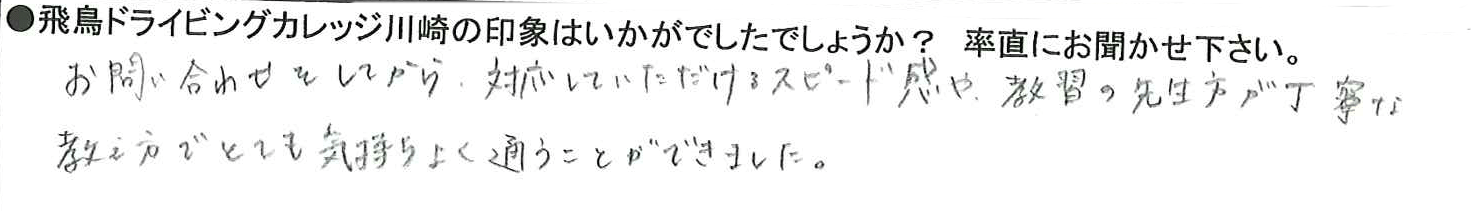 ●飛鳥ドライビングカレッジ川崎の印象はいかがでしたでしょうか？ 率直にお聞かせ下さい。
お問い合わせをしてから、対応していただけるスピード感や、教習の先生方が丁寧な
教え方でとても気持ちよく通うことができました。